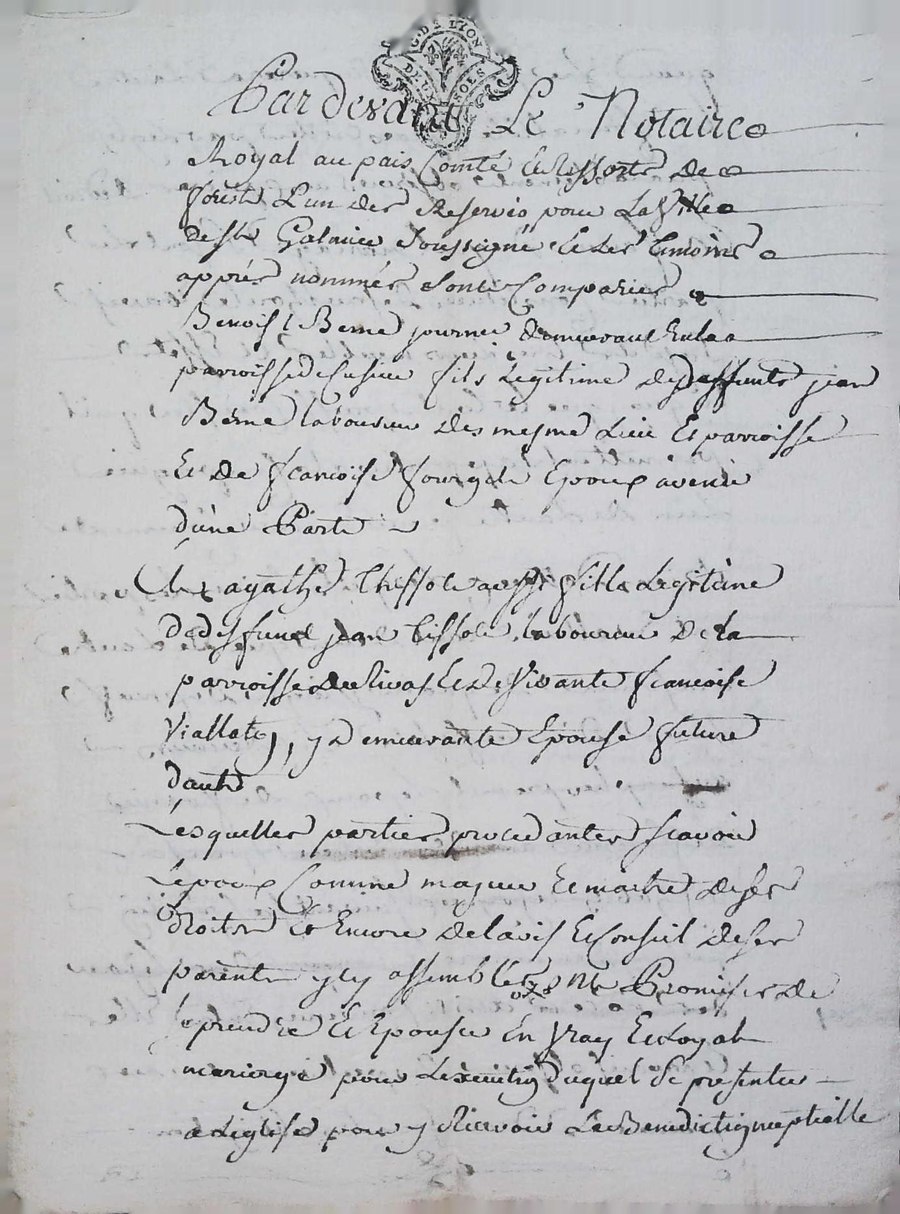 G. DE LYON
DEUX SOLS
Pardevant Le Notaire
Royal au pais Comté Et Ressorts de
forest L'un des Reservés pour La Ville
de st Galmier Soussigné Et Les temoins
apprès nommés Sont Comparus
Benoist Beme demeurant En la
parroisse de fils Legitime de deffunts jean
Beme laboureur des mesme Lieu Et parroisse
Et de francoise Epoux avenir
d'une Part
Et agathe Thessot aussy fille Legitime
de deffunct jean Tissot laboureur de la
parroisse de Rivas Et de Vivante francoise
Viallate, y demeurante Epouse future
d'autre
Lesquelles parties procedantes scavoir
L'epoux Comme majeur Et maitre de ses
droits Et Encore de lavis Et Conseil de ses
parents yssy assemblés ont Promis de
se prendre Et Epouser En vray Et Loyal
mariage pour L'execution duquel Se presenter
a Leglise pour y Recevoir La Benediction nuptialle